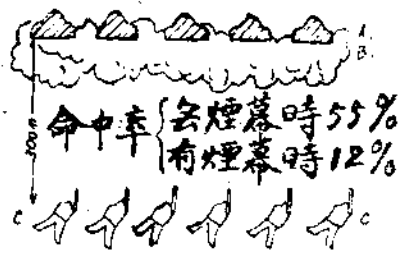 A
B
命中率
无煙幕時55%
有煙幕時12%
C
C